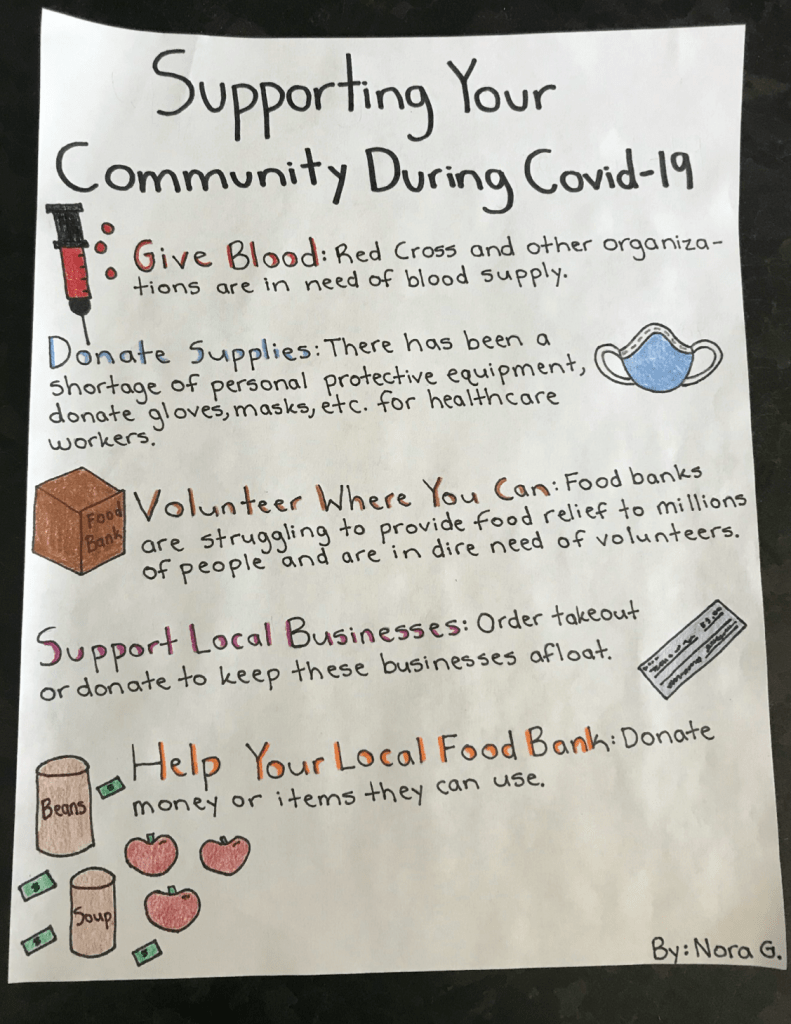 Supporting Your
Community During Covid-19
Give Blood: Red Cross and other organiza-
tions are in need of blood supply.
Donate Supplies: There has been a
shortage of personal protective equipment,
donate gloves, masks, etc. for healthcare
workers.
Food
Bank
Volunteer Where You Can: Food banks
are struggling to provide food relief to millions
of people and are in dire need of volunteers.
Support Local Businesses: Order takeout
or donate to keep these businesses afloat.
Help Your Local Food Bank: Donate
money or items they can use.
Beans
$
$
Soup
$
$
By: Nora G.